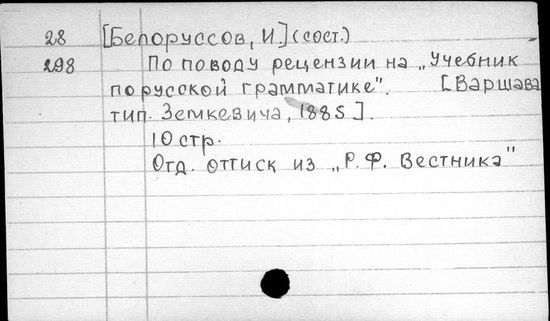 28 [Белоруссов, И.] (сост.)
298 По поводу рецензии на „Учебник
по русской грамматике". [Варшава
тип. Земкевича, 1885].
10 стр.
Отд. оттиск из „Р. Ф. Вестника"